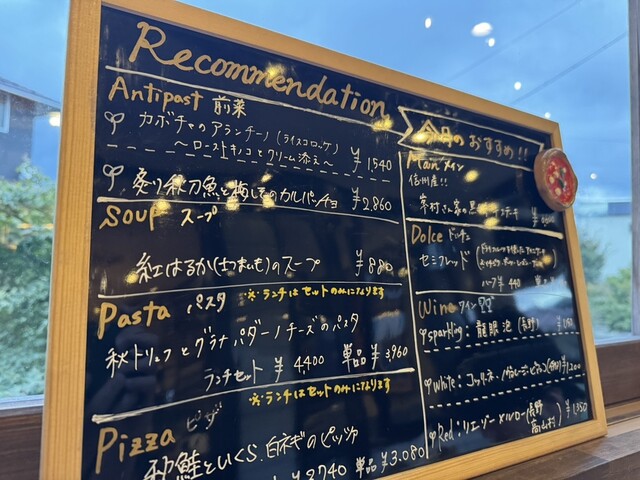 Recommendation
Antipast 前菜
カボチャのアランチーノ(ライスコロッケ)
〜ローストキノコとクリーム添え〜 ¥1,540
炙り秋刀魚と梅しそのカルパッチョ ¥2,860
soup スープ
紅はるか(さつまいも)のスープ ¥880
Pasta パスタ ※ランチはセットのみになります
秋トリュフとグラナパダーノチーズのパスタ
ランチセット ¥4,400 単品¥3,960
※ランチはセットのみになります
Pizza ピザ
秋鮭といくら、白ネギのピッツァ
単品¥3,080
今月のおすすめ!!
Main メイン
信州産!!
Dolce ドルチェ
セミフレッド
ハーフ¥440
Wine ワイン
sparkling: 龍眼 泡 (長野)
White:
¥1,200
Red: リエゾー メルロー(長野
高山村) ¥1,350